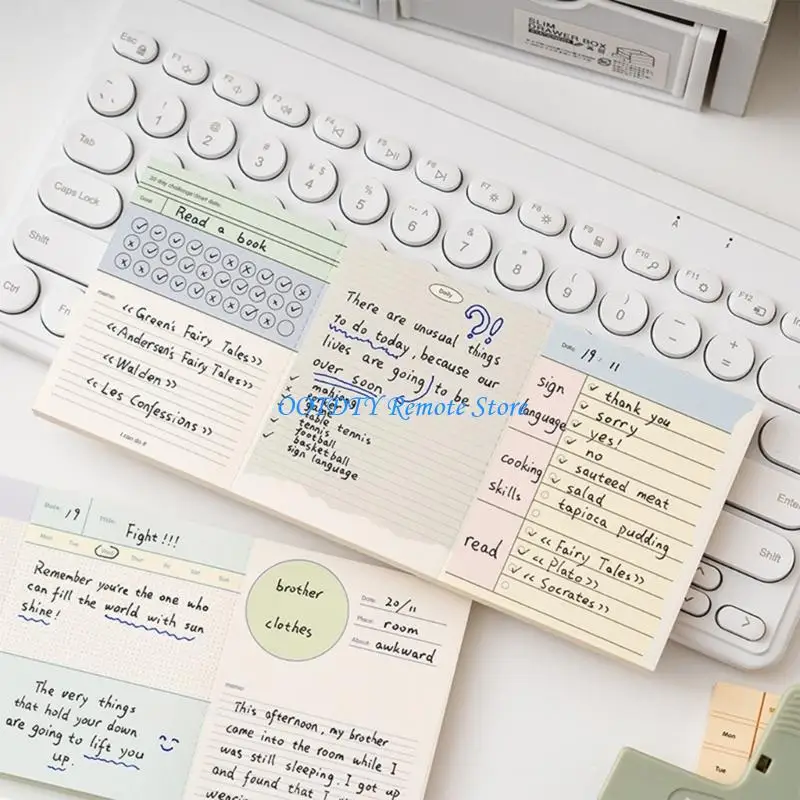 SLIM
DRAWER BOX
Esc
F1
F2
F3
F4
F5
F6
F7
F8
F9
F10
F11
F12
1
@
2
#
3
¥ $
4
%
5
^
6
&
7
*
8
(
9
)
0
+
=
Tab
Caps Lock
Shift
Ctrl
Fn
Enter
Shift
A
30 day challenge/Start date:
Goal
Read a book
memo:
<<Green's Fairy Tales>>
<<Andersen's Fairy Tales>>
<<Walden>>
<<Les Confessions>>
I can do it
Daily
?!
There are unusual things
to do today, because our
lives are going to be
over soon
mahjong
table tennis
tennis
football
basketball
sign language
Date: 19. 11
sign
language
thank you
sorry
yes!
no
cooking
skills
sauteed meat
salad
tapioca pudding
read
<<Fairy Tales>>
<<Plato>>
<<Socrates>>
OOTDTY Remote Store
Date: 19
Title: Fight!!!
Mon Tue Wed Thur Fri Sat Sun
Remember you're the one who
can fill the world with sun
shine!
The very things
that hold your down
are going to lift you
up.
brother
clothes
Date: 20/11
Place: room
About: awkward
memo:
This afternoon, my brother
came into the room while I
was still sleeping. I got up
and found that I
Mon
Tue